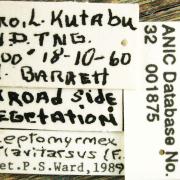 ro, L. Kutubu
D. TNG.
00' 18-10-60
BARRETT
ROAD SIDE
EGETATION
eptomyrmex
lavitarsus (F.
et. P.S. Ward, 1989
ANIC Database No.
32 001875